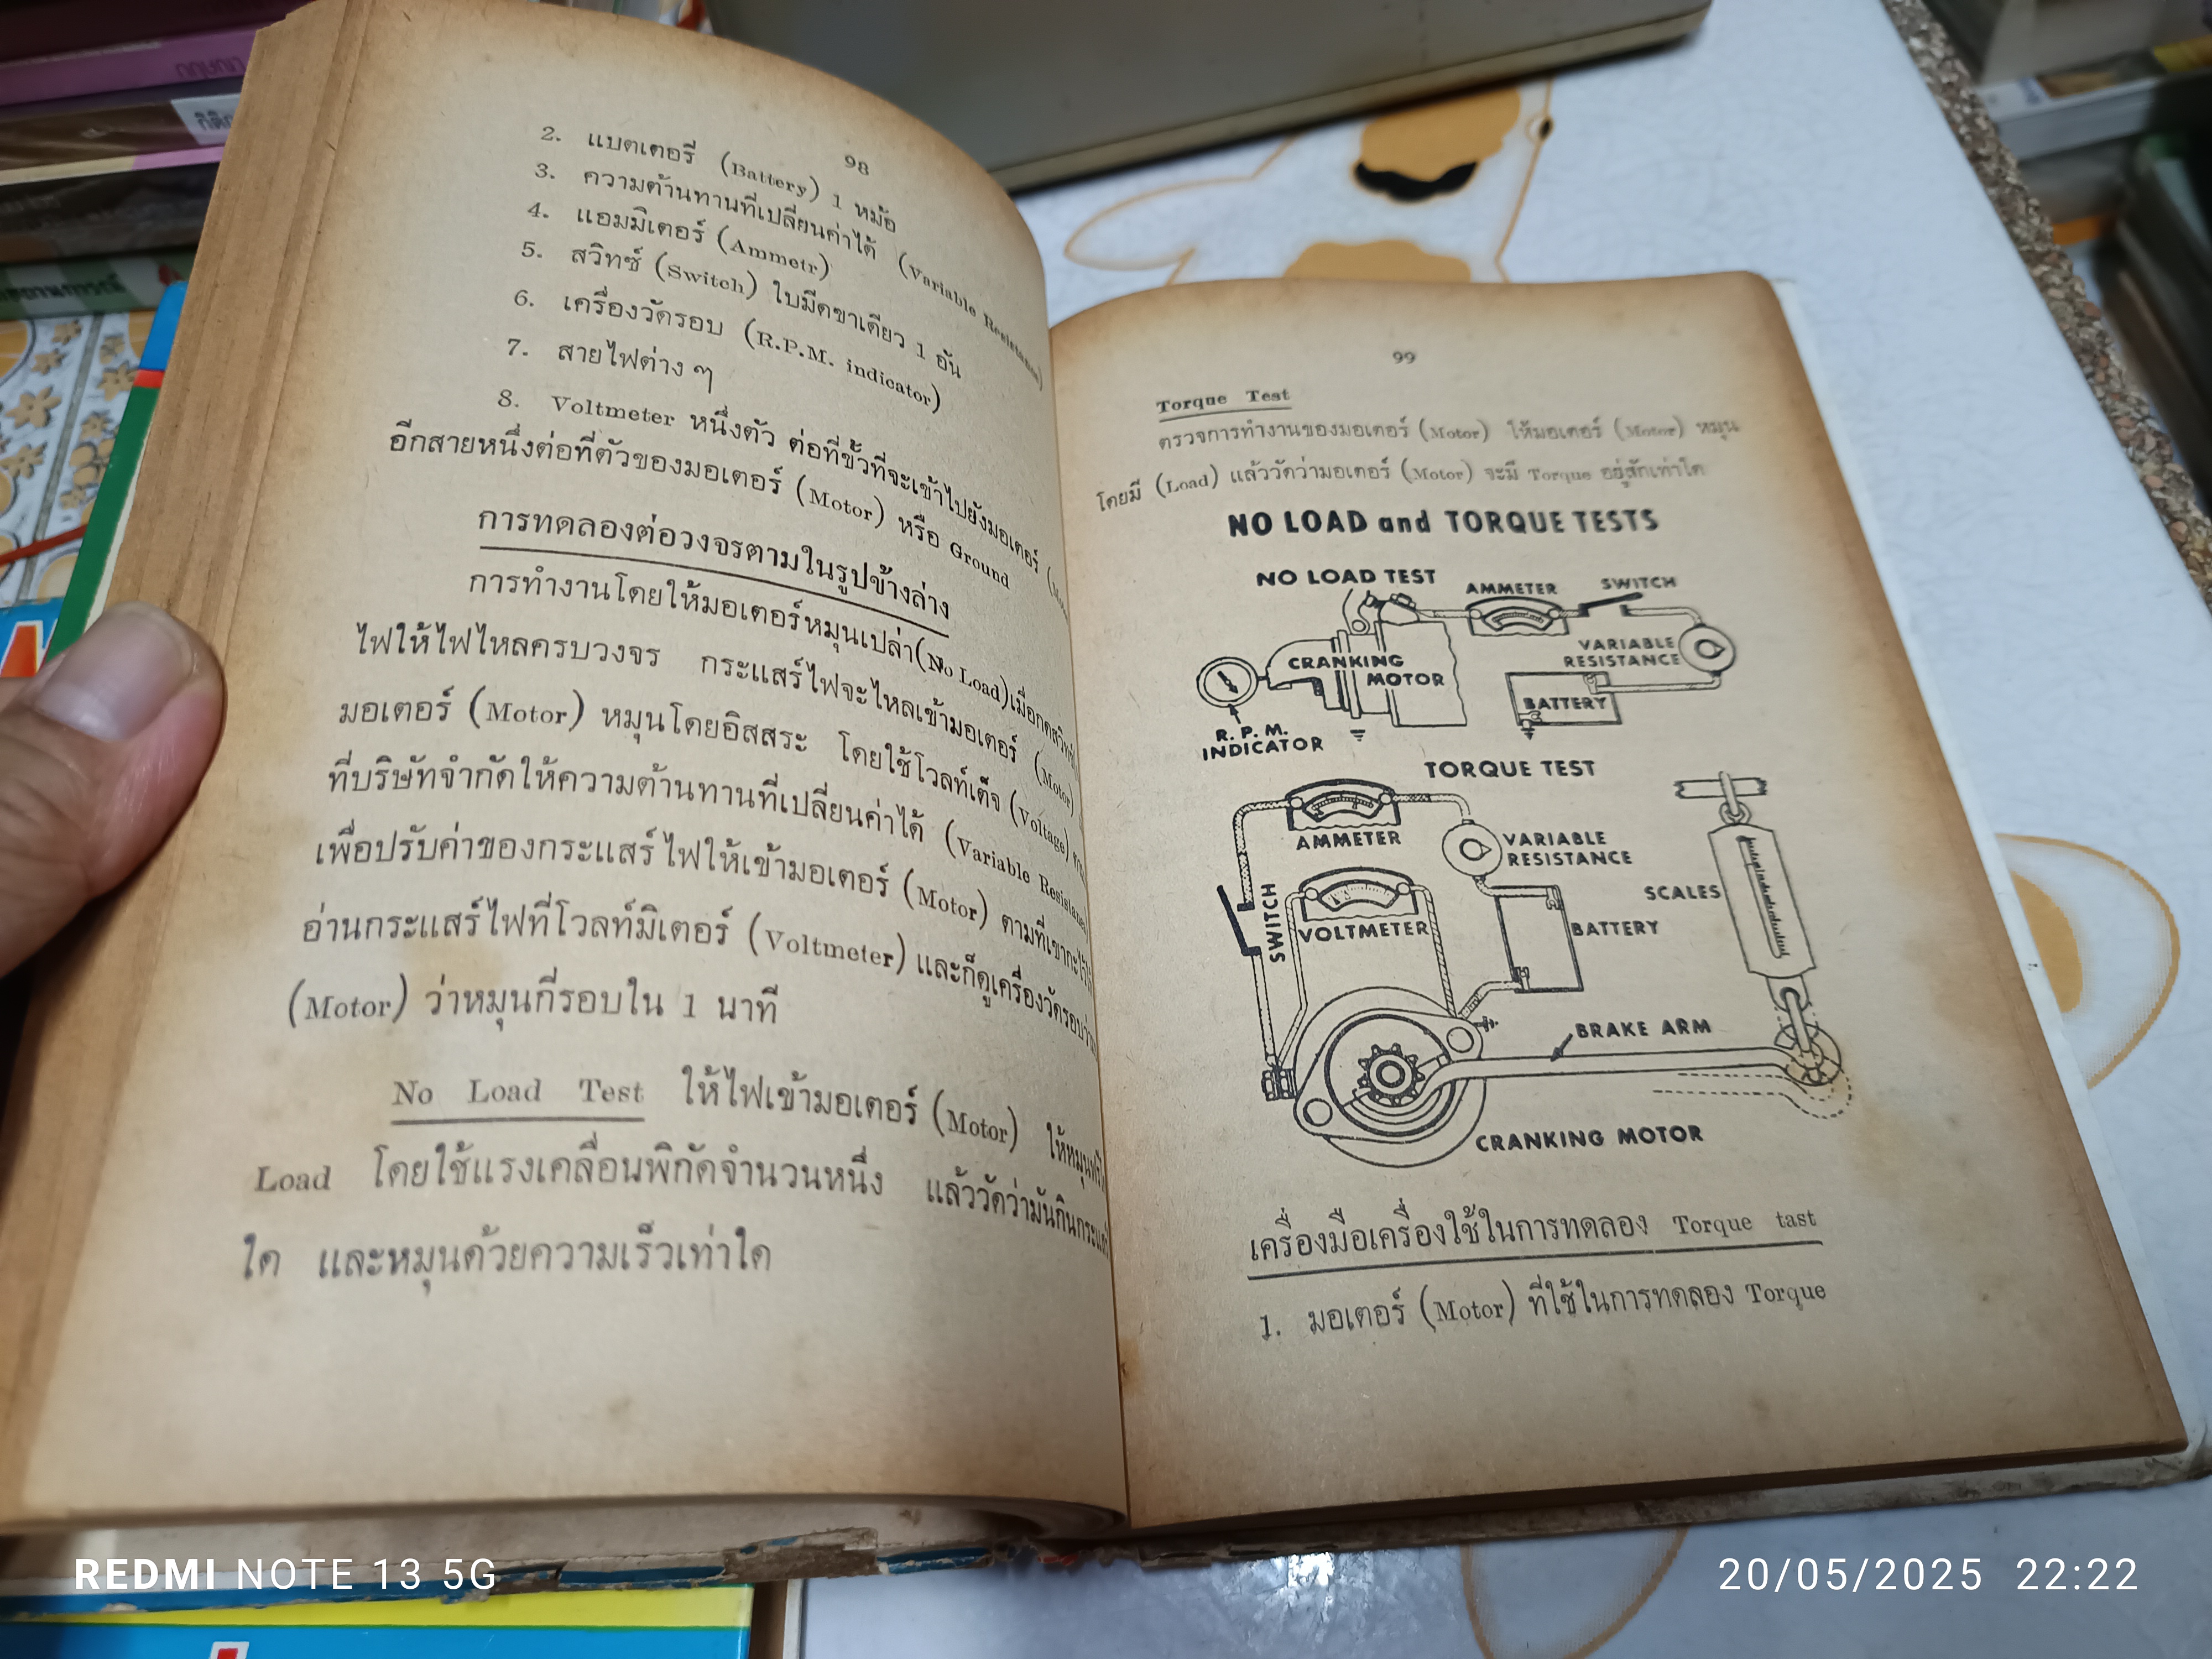 98
2. แบตเตอรี่ (Battery) 1 หม้อ
3. ความต้านทานที่เปลี่ยนค่าได้ (Variable Resistance)
4. แอมมิเตอร์ (Ammetr)
5. สวิทซ์ (Switch) ใบมีดขาเดียว 1 อัน
6. เครื่องวัดรอบ (R.P.M. indicator)
7. สายไฟต่าง ๆ
8. Voltmeter หนึ่งตัว ต่อที่ขั้วที่จะเข้าไปยังมอเตอร์
อีกสายหนึ่งต่อที่ตัวของมอเตอร์ (Motor) หรือ Ground
การทดลองต่อวงจรตามในรูปข้างล่าง
การทำงานโดยให้มอเตอร์หมุนเปล่า(No Load)เมื่อกดสวิทซ์
ไฟให้ไฟไหลครบวงจร กระแสร์ไฟจะไหลเข้ามอเตอร์ (Motor)
มอเตอร์ (Motor) หมุนโดยอิสสระ โดยใช้โวลท์เต็จ (Voltage)
ที่บริษัทจำกัดให้ความต้านทานที่เปลี่ยนค่าได้ (Variable
เพื่อปรับค่าของกระแสร์ไฟให้เข้ามอเตอร์ (Motor) ตามที่เขากะไว้
อ่านกระแสร์ไฟที่โวลท์มิเตอร์ (Voltmeter) และก็ดูเครื่องวัดรอบ
(Motor) ว่าหมุนกี่รอบใน 1 นาที
No Load Test ให้ไฟเข้ามอเตอร์ (Motor)
Load โดยใช้แรงเคลื่อนพิกัดจำนวนหนึ่ง แล้ววัดว่ามันกินกระแส
ใด และหมุนด้วยความเร็วเท่าใด
99
Torque Test
ตรวจการทำงานของมอเตอร์ (Motor) ให้มอเตอร์ (Motor) หมุน
โดยมี (Load) แล้ววัดว่ามอเตอร์ (Motor) จะมี Torque อยู่สักเท่าใด
NO LOAD and TORQUE TESTS
NO LOAD TEST
AMMETER
SWITCH
VARIABLE
RESISTANCE
CRANKING
MOTOR
BATTERY
R. P. M.
INDICATOR
TORQUE TEST
AMMETER
VARIABLE
RESISTANCE
SCALES
SWITCH
VOLTMETER
BATTERY
BRAKE ARM
CRANKING MOTOR
เครื่องมือเครื่องใช้ในการทดลอง Torque tast
1. มอเตอร์ (Motor) ที่ใช้ในการทดลอง Torque
REDMI NOTE 13 5G
20/05/2025 22:22